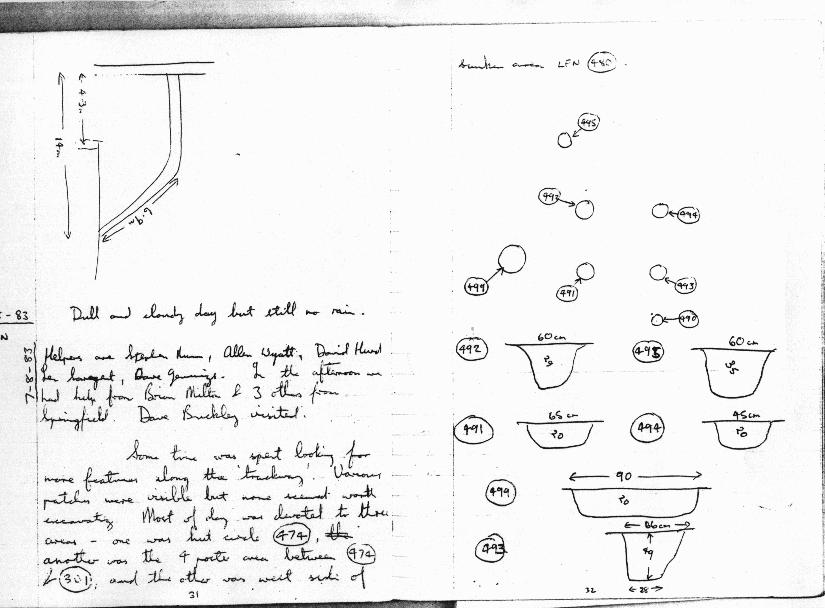 4.3m
14m
6.9m
- 83
Dull and cloudy day but still no rain.
7-8-83
Helpers are Stephen, Allen Wyatt, David Hurst
Dave Jennings. In the afternoon we
had help from Brian Milton & 3 others from
Springfield. Dave Buckley visited.
Some time was spent looking for
more features along the 'trackway'. Various
patches were visible but none seemed worth
excavating. Most of day was devoted to three
areas - one was hut circle 474, the
another was the 4 poster area between 474
& 301, and the other was west side of
31
sunken area LFN 480.
495
492
494
499
491
493
490
492
60cm
495
60cm
491
65cm
20
494
45cm
20
499
90
20
493
86cm
28
32